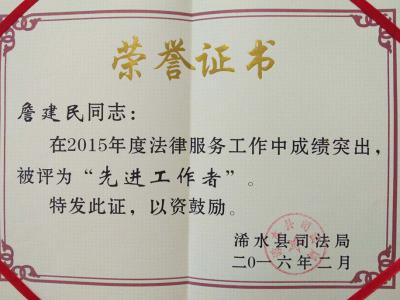 荣誉证书
詹建民同志：
在2015年度法律服务工作中成绩突出，
被评为“先进工作者”。
特发此证，以资鼓励。
浠水县司法局
二0一六年二月